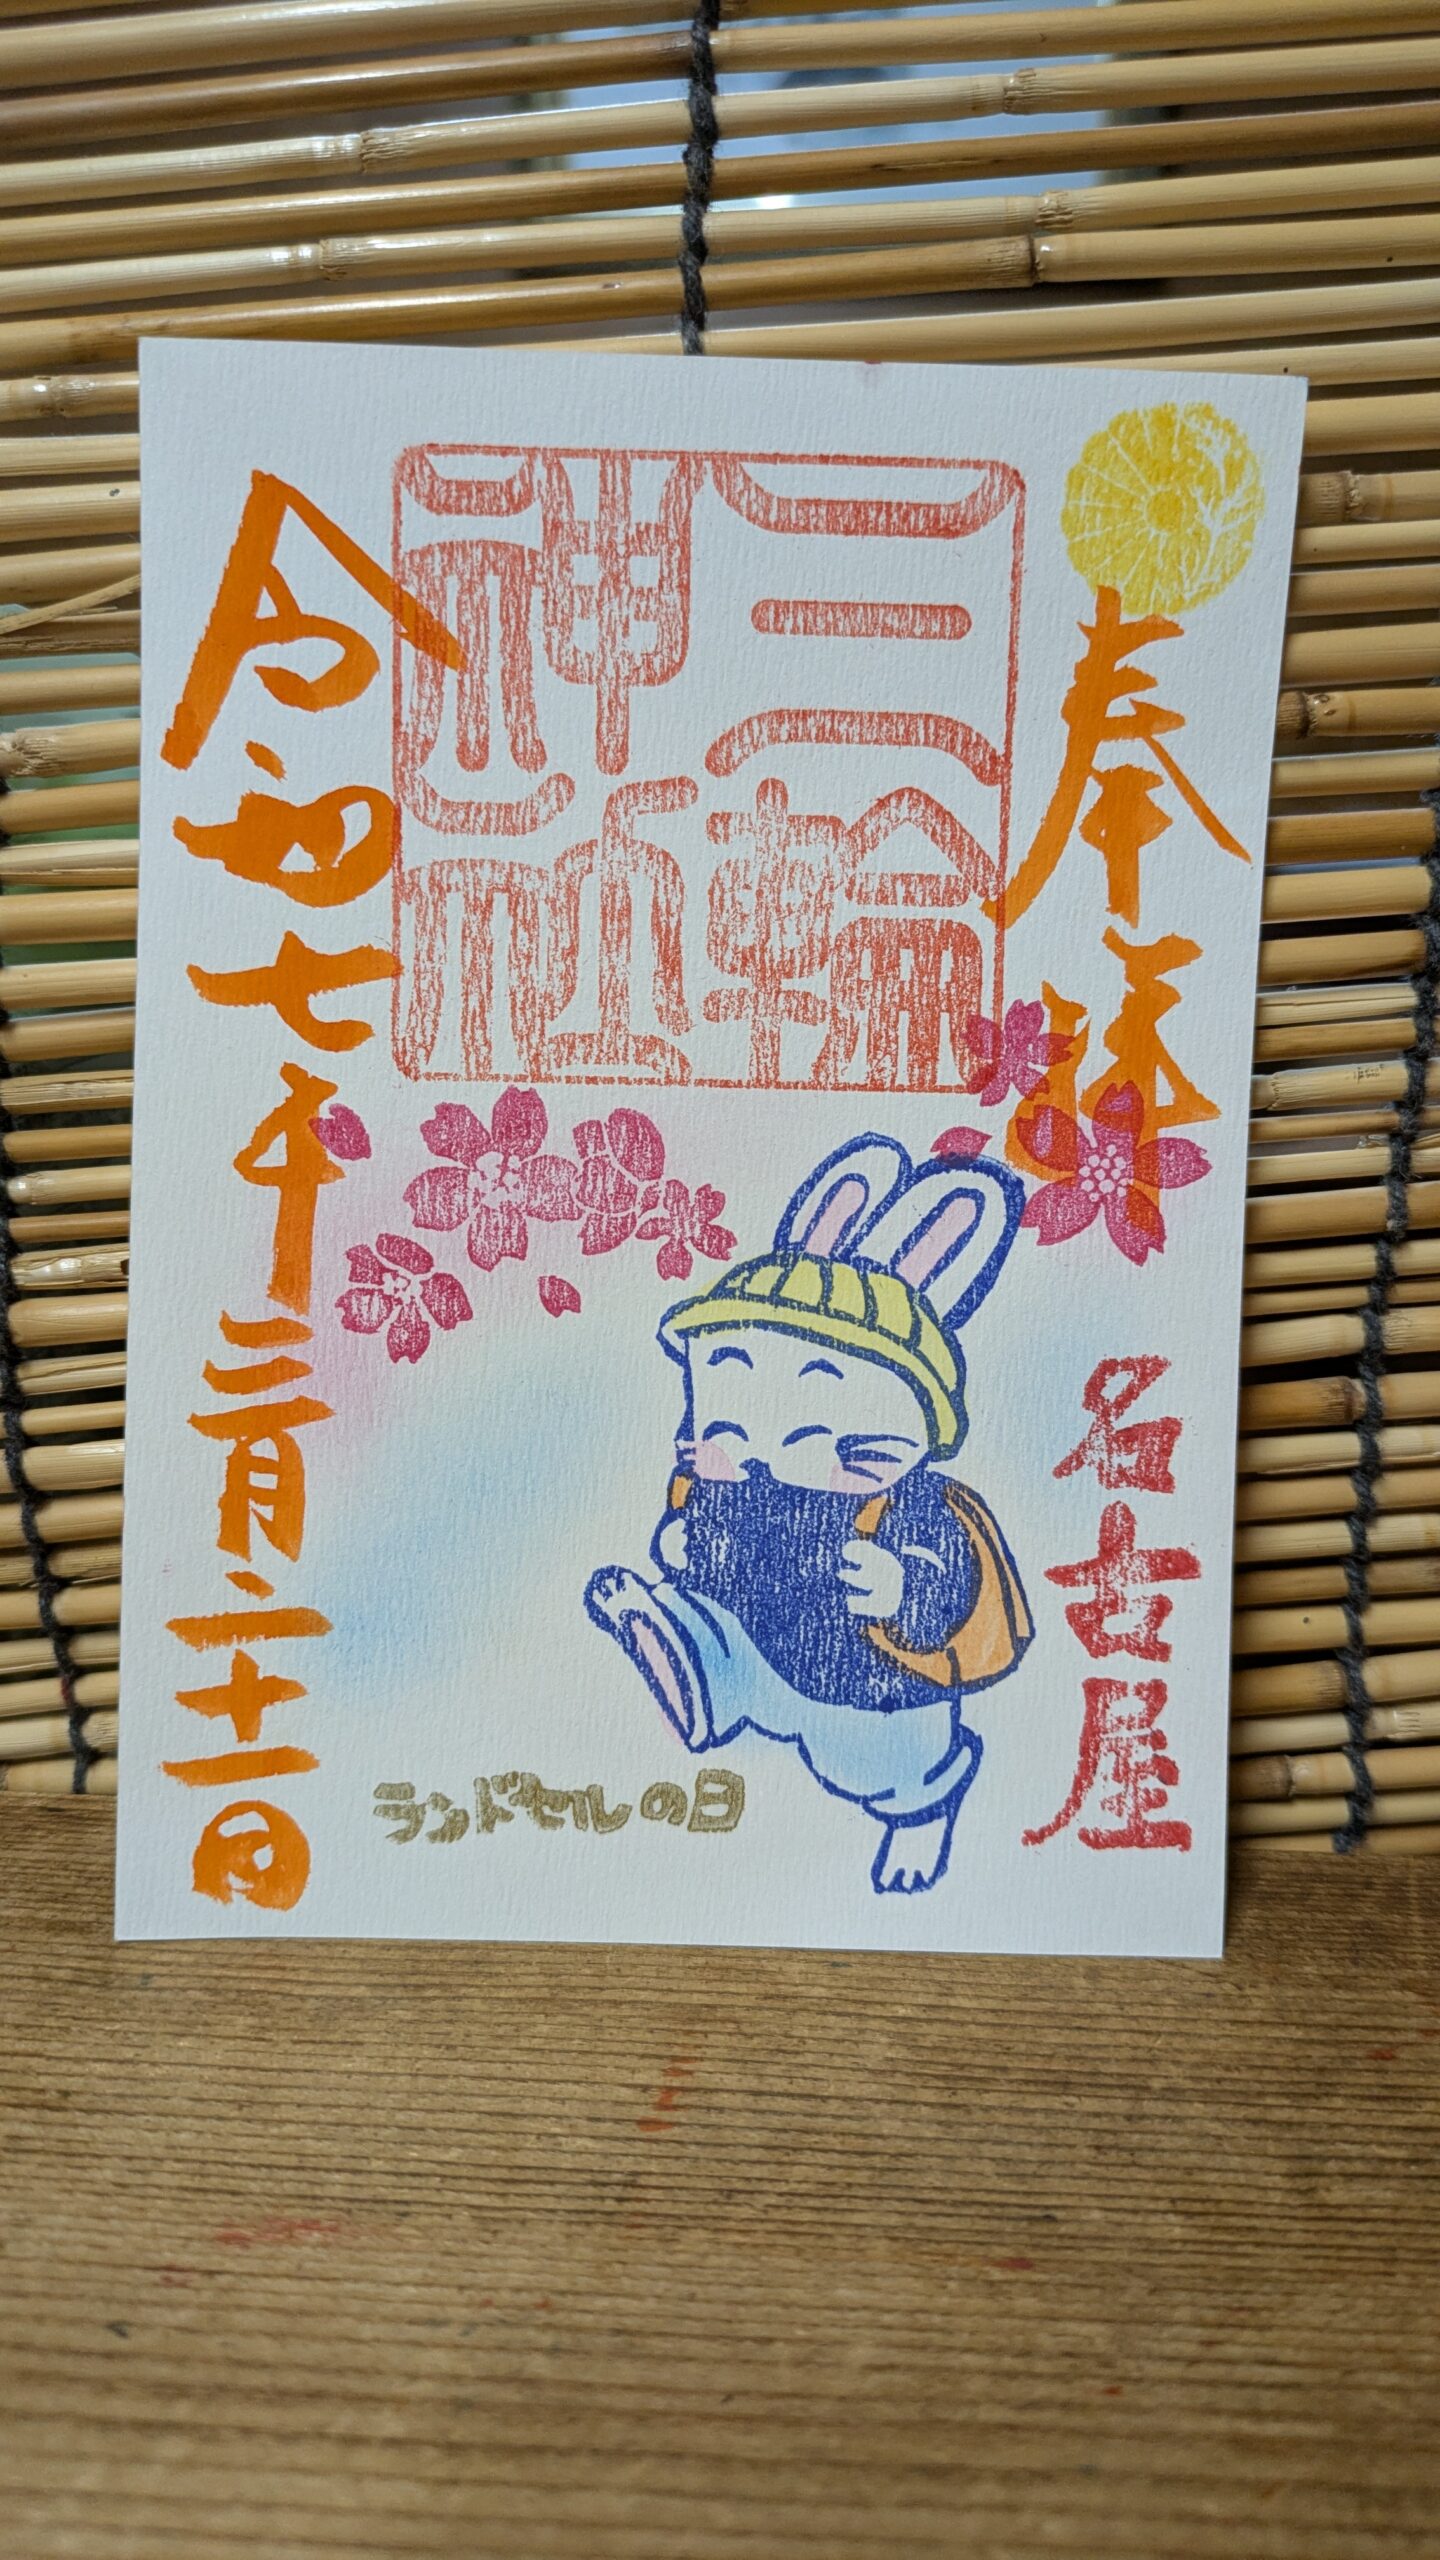 奉拝
名古屋
三輪
神社
令和七年三月二十一日
ランドセルの日